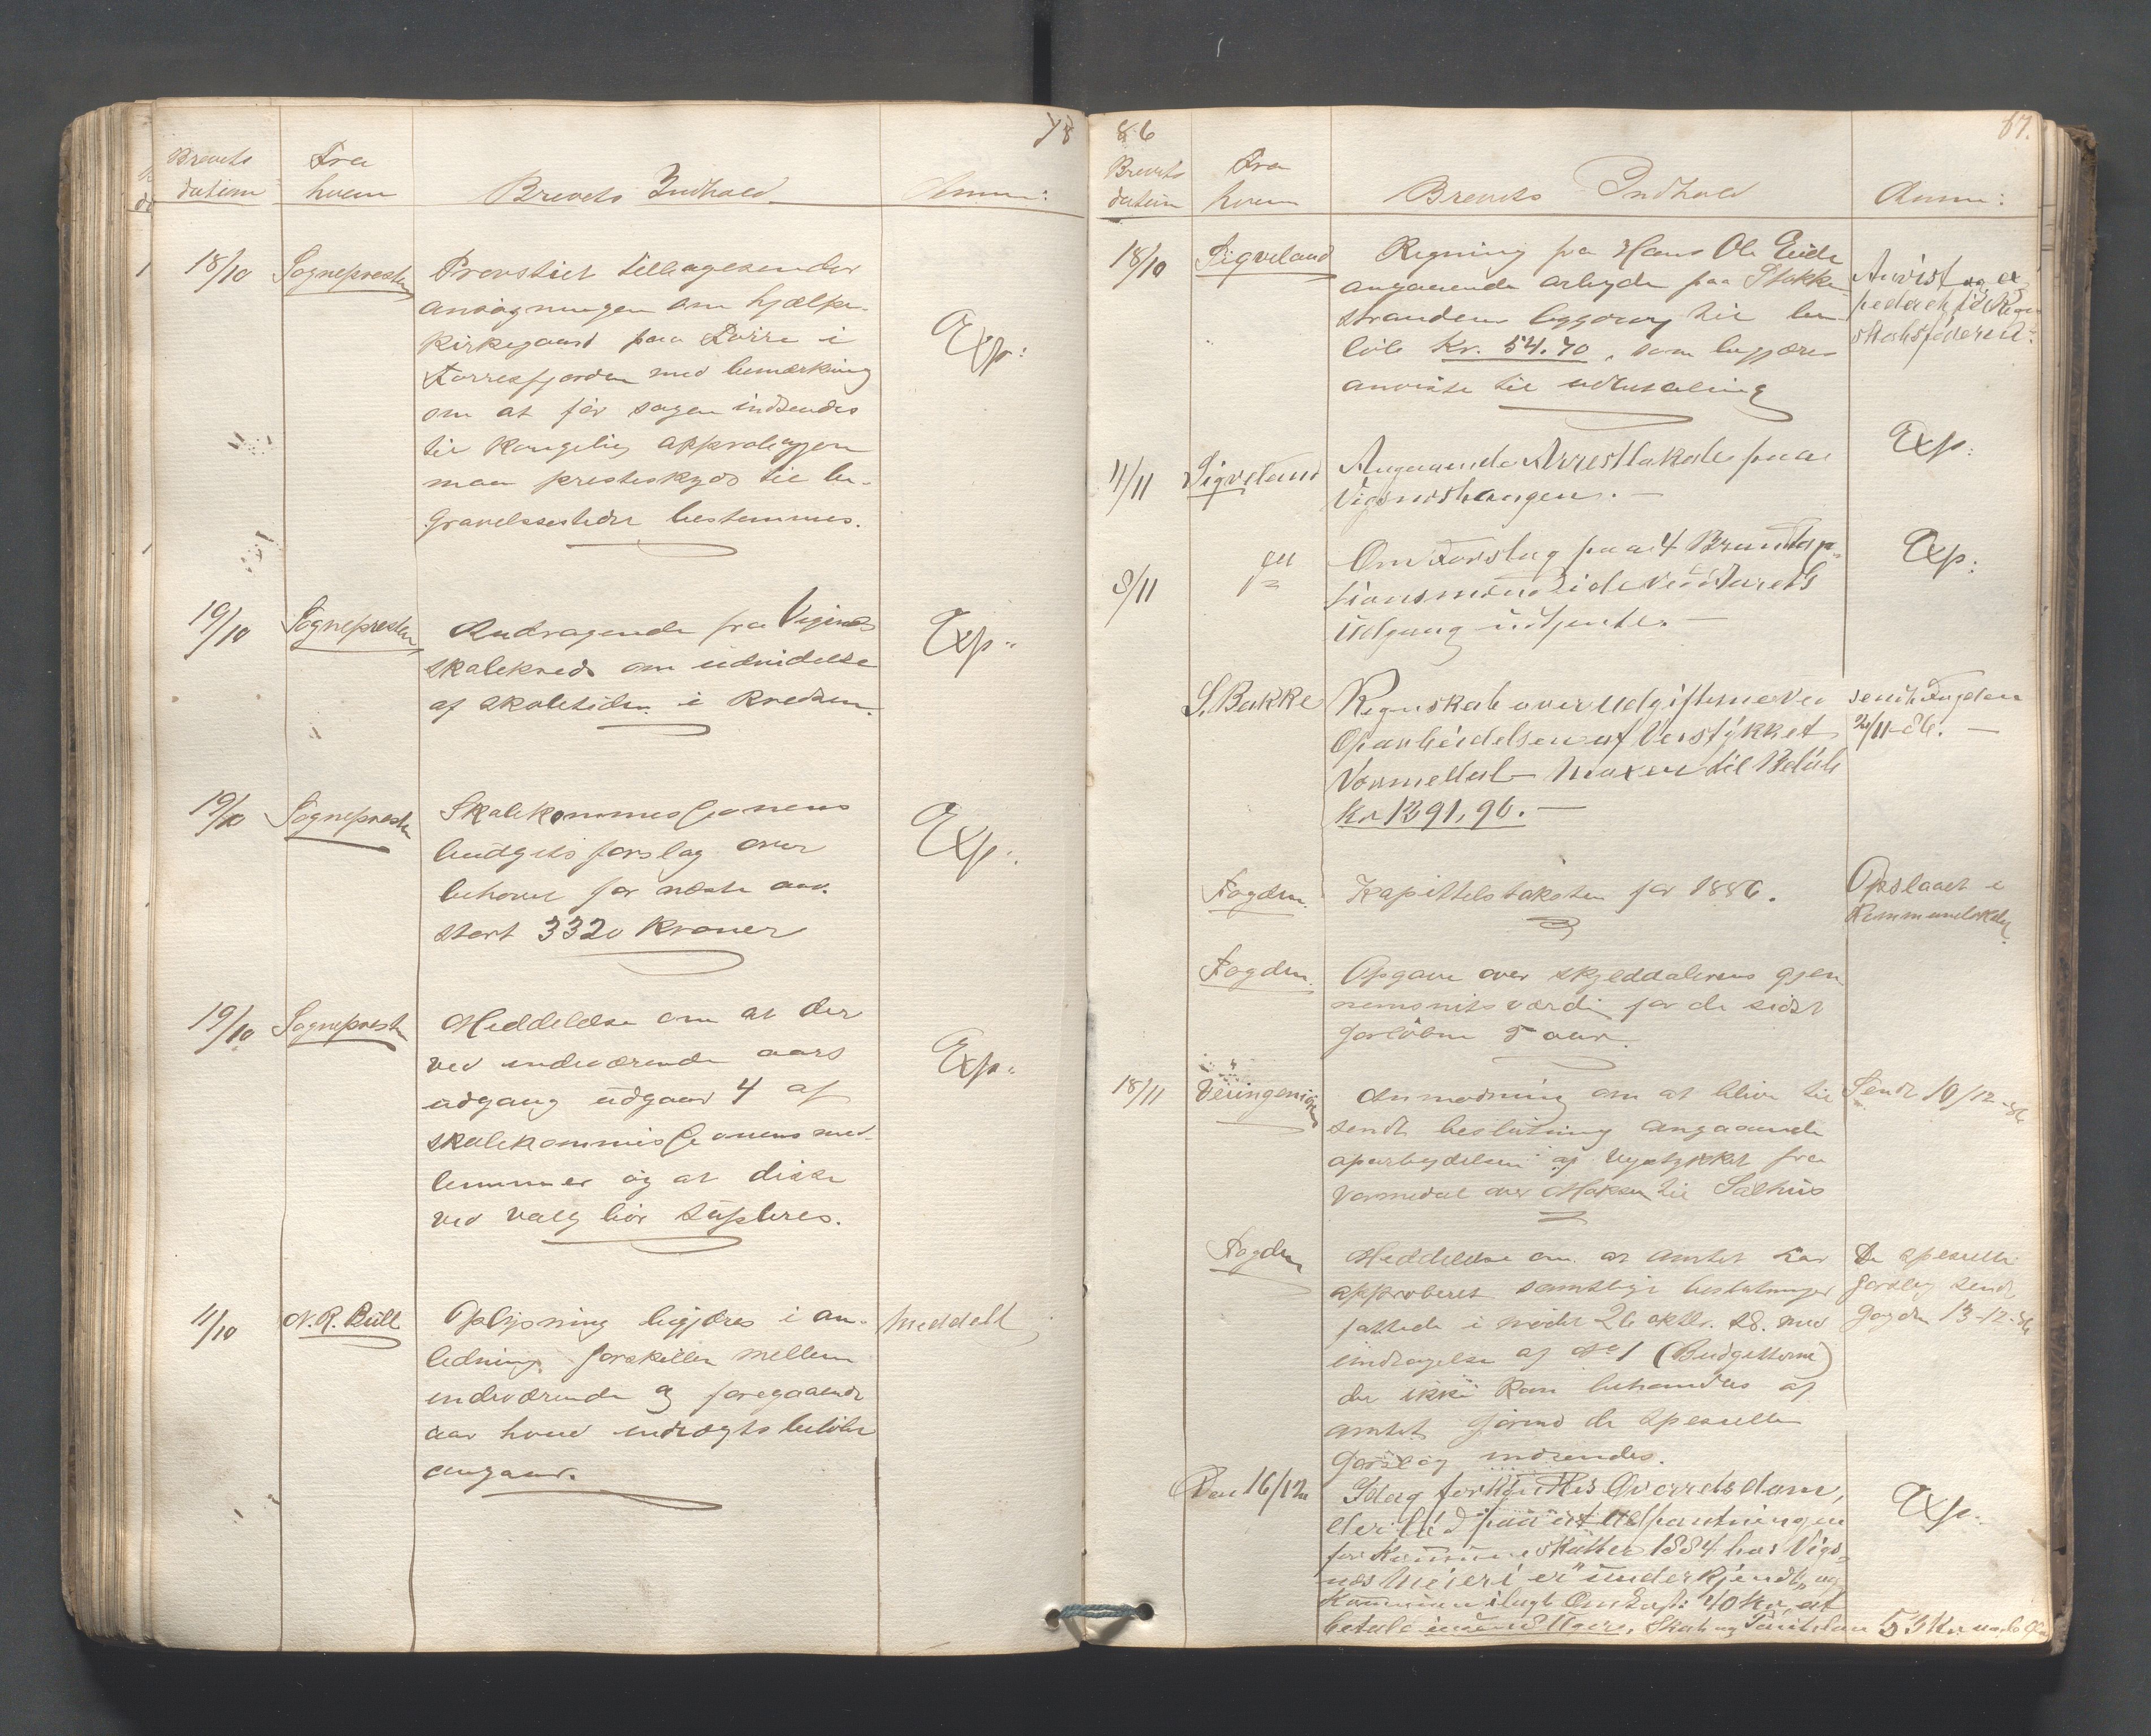 78
Brevets datum
Fra hvem
Brevets Indhold
Anm:
18/10
Sognepresten
Provstiet tilbagesender
ansøgningen om hjælpe-
kirkegaard paa Førre i
Førresfjorden med bemærkning
om at før sagen indsendes
til kongelig approbasjon
maa presteskyds til be-
gravelsestider bestemmes.
Exp:
19/10
Sognepresten
Andragende fra Vigsnes
skolekreds om udvidelse
af skoletiden i kredsen.
Exp.
19/10
Sognepresten
Skolekommissionens
budgets forslag over
behovet for næste aar.
stort 3320 Kroner
Exp.
19/10
Sognepresten
Meddelelse om at der
ved indeværende aars
udgang udgaar 4 af
skolekommissionens med-
lemmer og at disse
ved valg bør supleres.
Exp.
11/10
N. R. Bull
Oplysning begjæres i an-
ledning forskellen mellem
indeværende og foregaaende
aar hvad indtægts beløbet
angaar.
meddelt
86
87.
Brevets datum
Fra hvem
Brevets Indhold
Anm:
18/10
Sigveland
Regning fra Hans Ole Eide
angaaende arbeyde paa Stokke-
strandens byggevey til be-
løb Kr. 54.70, som begjæres
anviste til udbetaling
Anvist og ex
pederet til Regn
skabsføreren.
4/11
Sigveland
Angaaende Arrestlokale paa
Vigsneshaugen. —
Exp.
8/11
Om Forslag paa 4 Brandtap-
tionsmænd i de ved Aarets
Udgang udtjente. —
Exp:
S. Bakke
Regnskab over Udgifterne ved
Oparbeidelsen af Veistykket
Vormedal - Moxen til Beløb
Kr 1391,96. —
sendt Fogden
/11-86. —
Fogden.
Kapittelstaksten for 1886.
Opslaaet i
Kommunelokalet.
Fogden.
Opgave over skjeddalerens gjen
nemsnits værdi for de sidst
forløbne 5 aar.
18/11
Veiingeniøren
Anmodning om at blive til
sendt beslutning angaaende
oparbeydelsen af Veystykket fra
Vormedal over Moksen til Salhus
Sendt 10/12-86
Fogden
Meddelelse om at amtet har
approberet samtlige beslutninger
fattede i mødet 26 oktbr. d8. med
undtagelse af No 1 (Budgetterne)
der ikke kan behandles af
amtet førend de spesielle
forslag indsendes.
De spesielle
forslag sendt
Fogden 13-12-86
Den 16/12
Idag forkyndtes Overretsdom,
der lød paa at Udpantningen
for Kommuneskatter 1884 hos Vigs-
næs Meieri er underkjendt, og
Kommunen ilagt Omkost: 40 Kr, at
betale inden 8 Dage, Skat og
53 Kr
Exp.